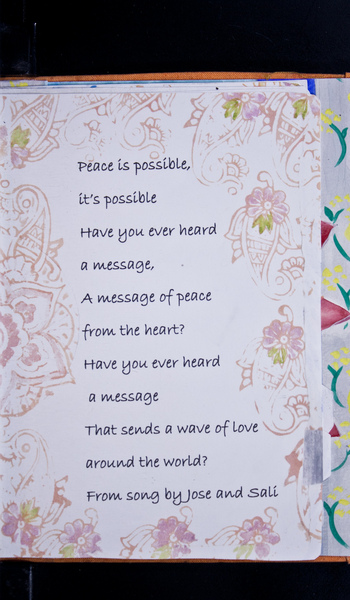 Peace is possible,
it's possible
Have you ever heard
a message,
A message of peace
from the heart?
Have you ever heard
a message
That sends a wave of love
around the world?
From song by Jose and Sali